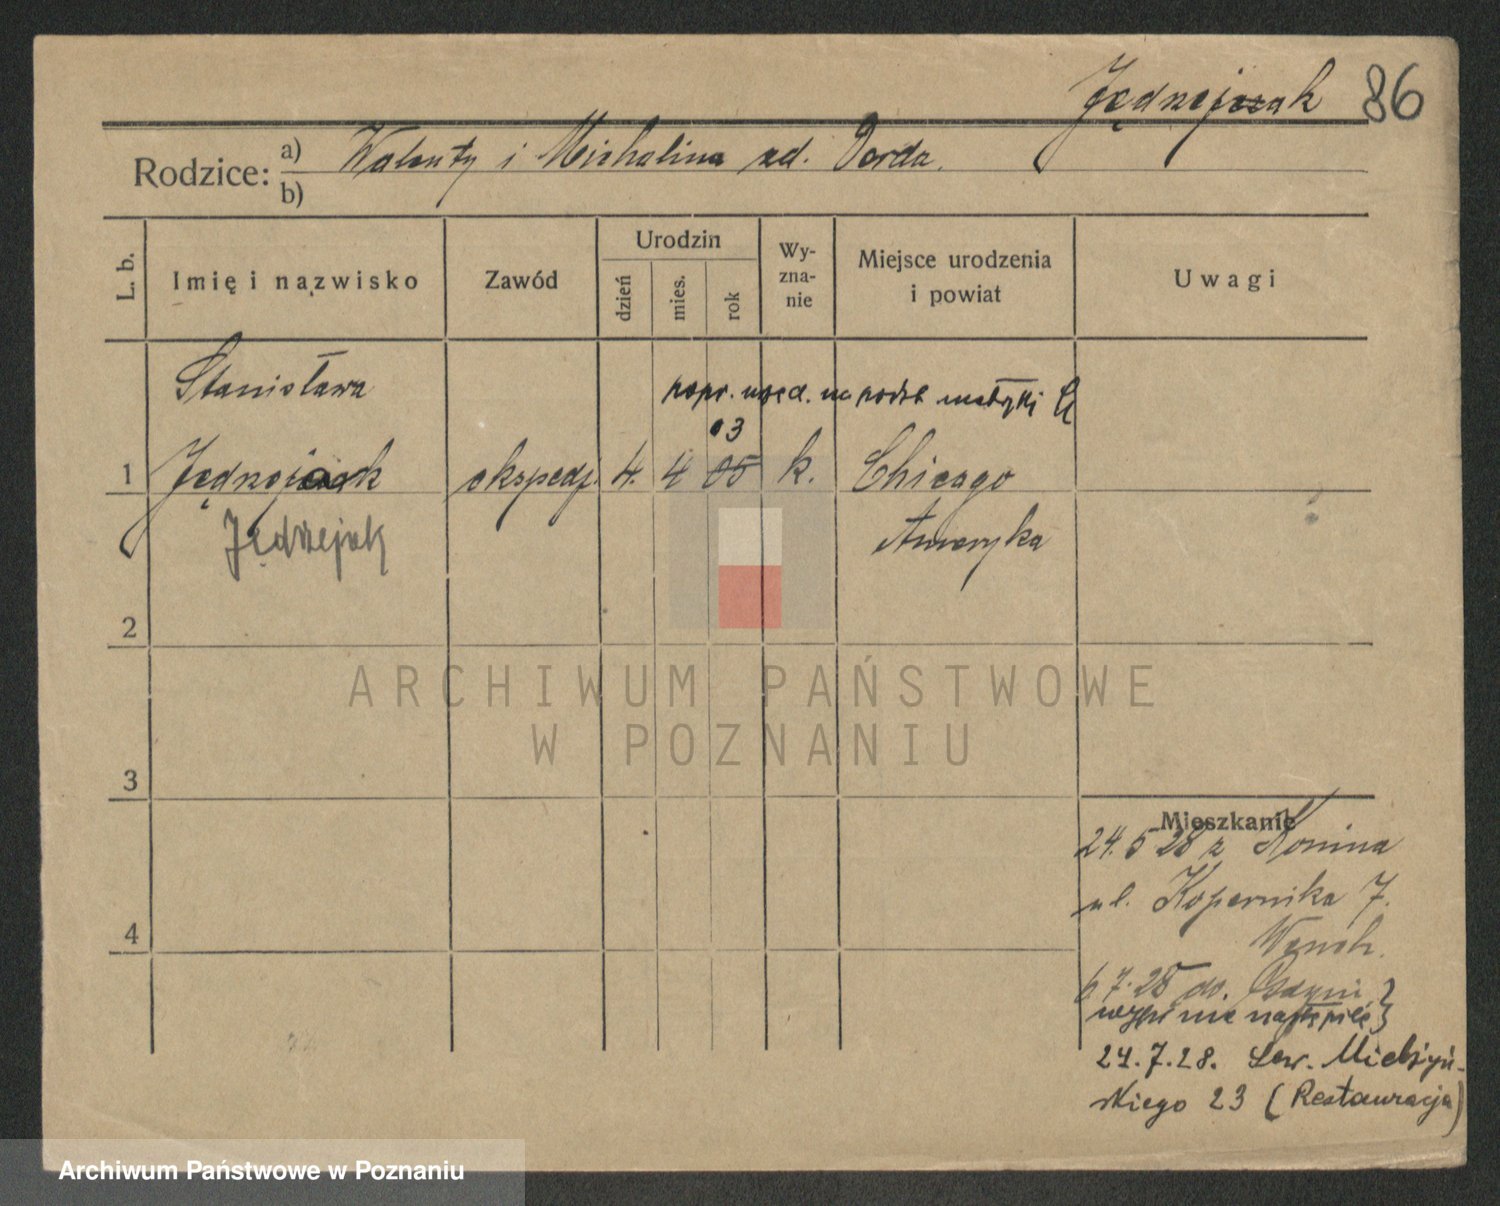 Jędrzejczak 86
Rodzice: a) Walenty i Michalina zd. Dorda.
b)
L. b.
Imię i nazwisko
Zawód
Urodzin
dzień
mies.
rok
Wy-
zna-
nie
Miejsce urodzenia
i powiat
Uwagi
Stanisława
popr. urzęd. na podst. metryki
03
1 ekspedj. 4. 4 05 k. Chicago
Jędrzejak
Ameryka
2
3
4
Mieszkanie
24.5 28 z Konina
ul. Kopernika 7.
6.7.28 do. Gdyni
nie nastąpiło
24.7.28. Sew. Mielżyń-
skiego 23 (Restauracja)
ARCHIWUM PAŃSTWOWE
W POZNANIU
Archiwum Państwowe w Poznaniu